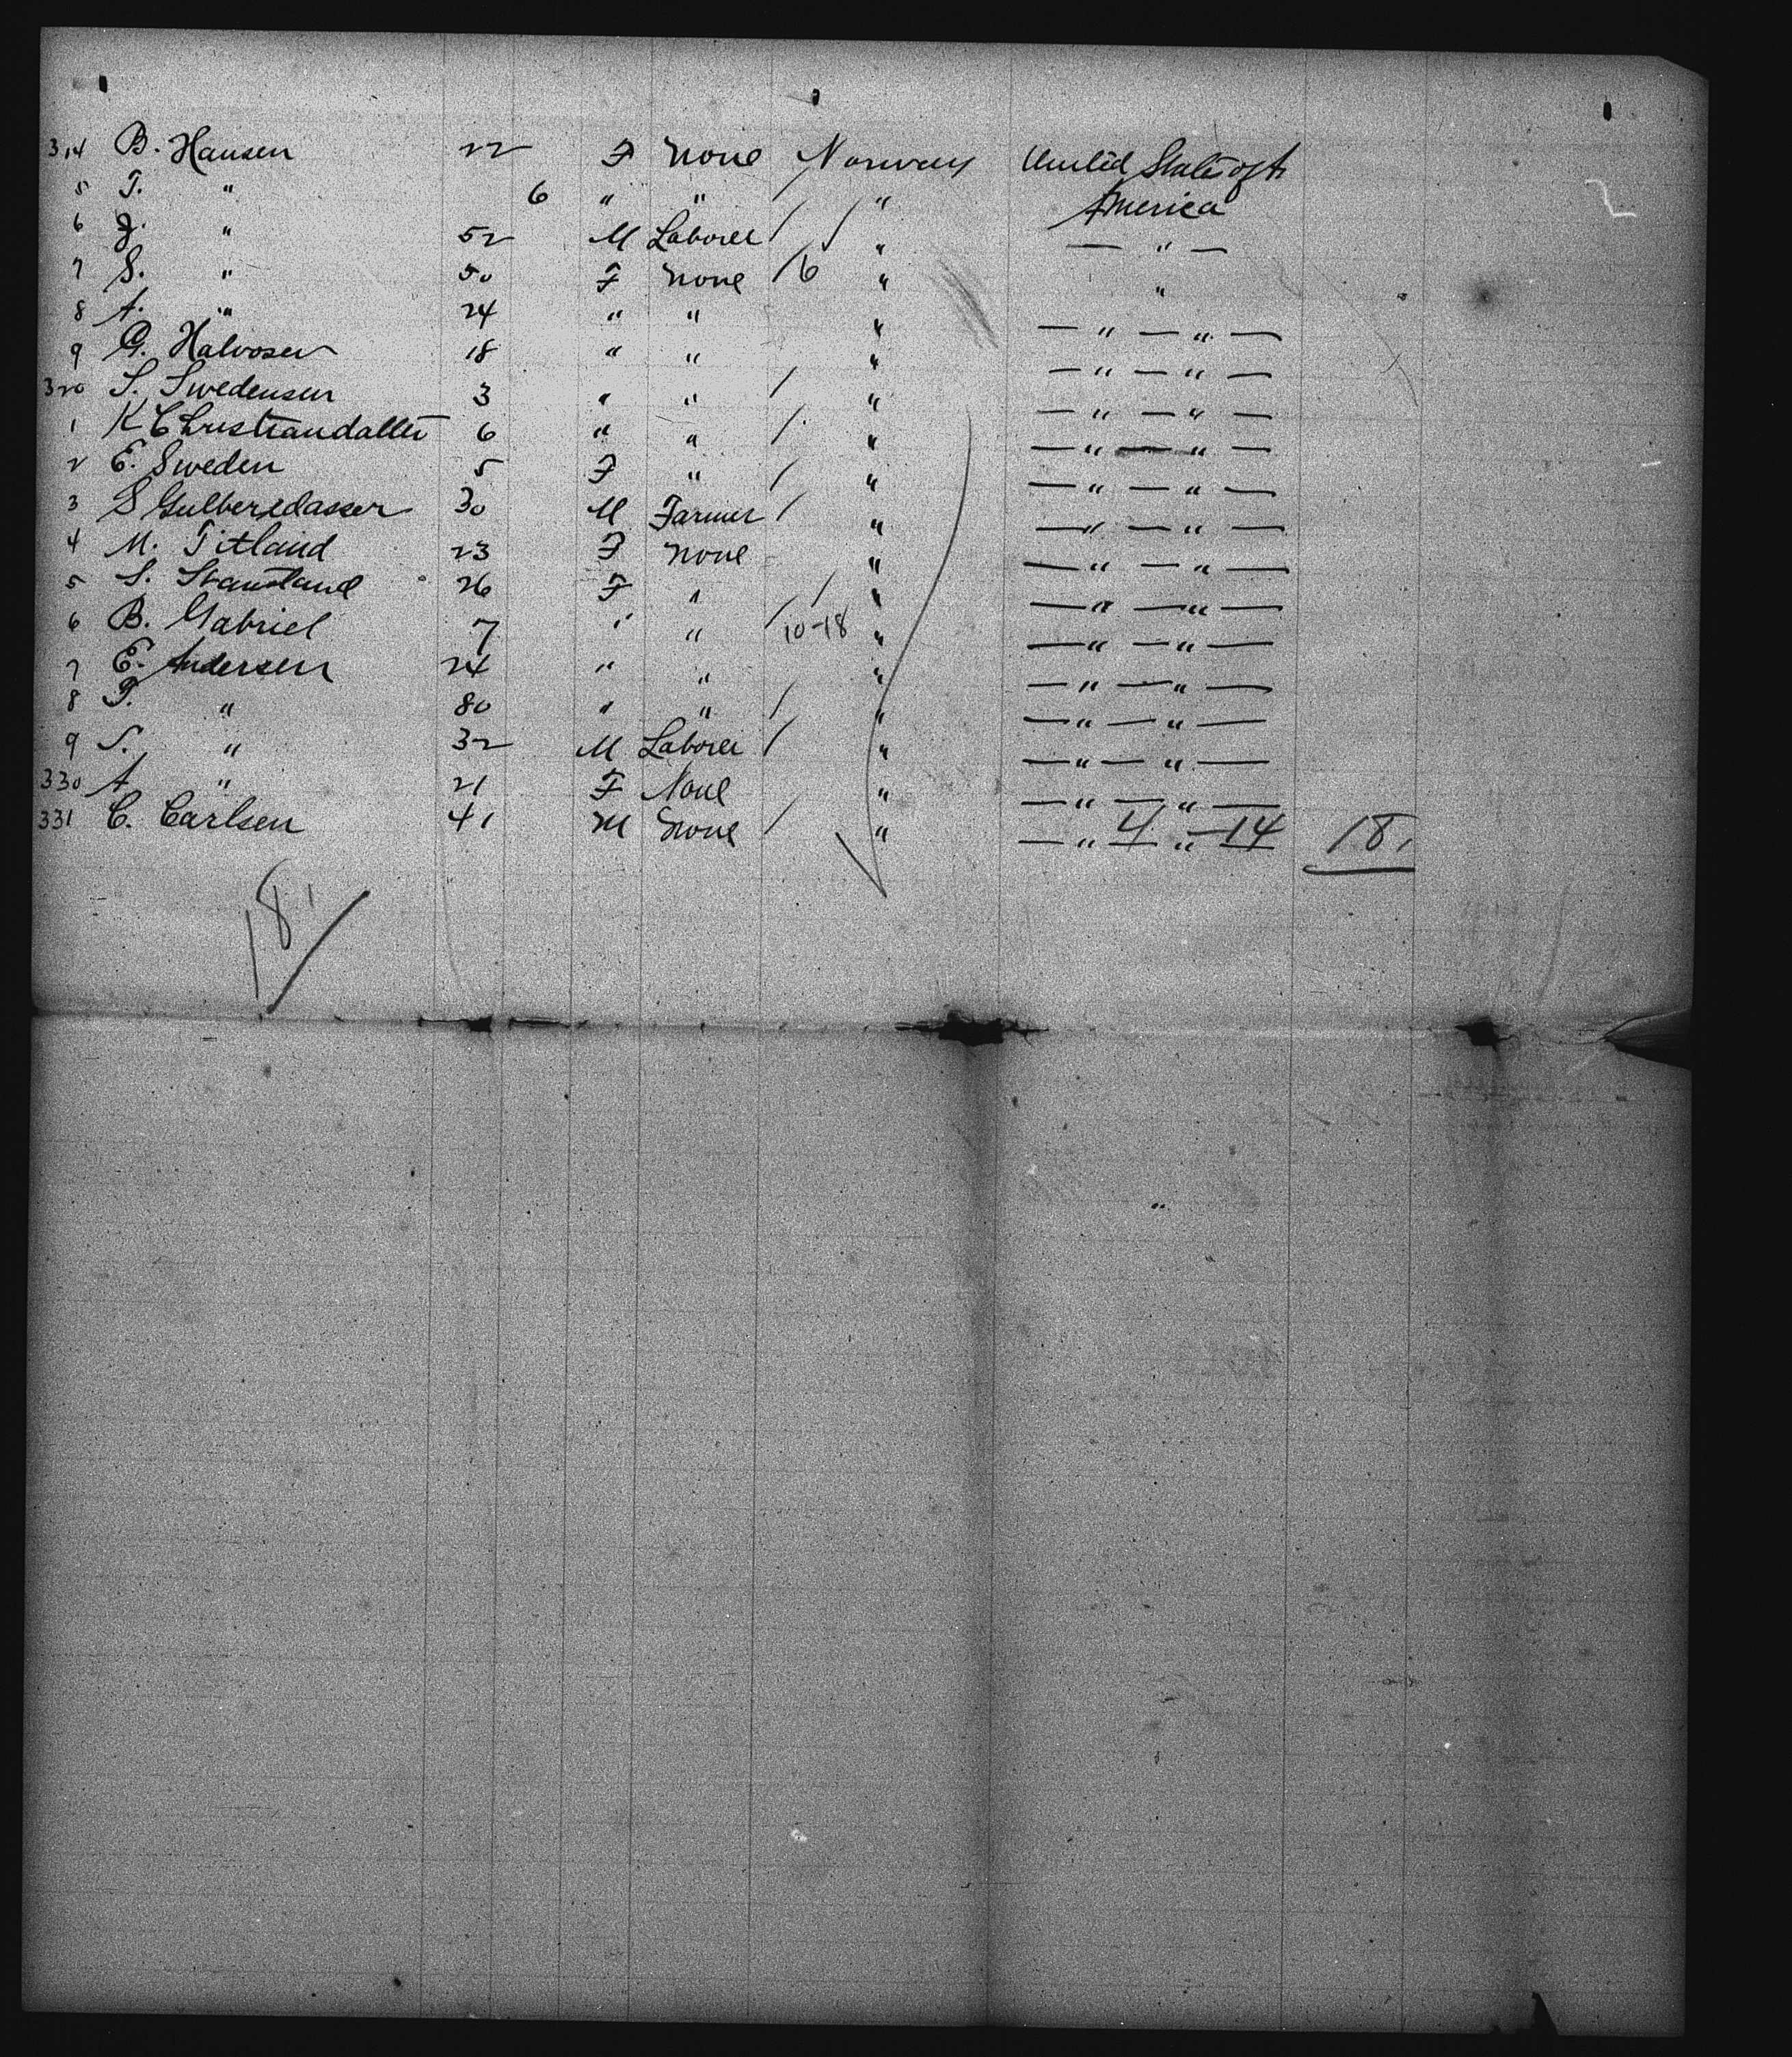 314 B. Hansen 22 F None Norway United States of A
America
5 T. " 6 " " "
6 J. " 52 M Laborer / / " — " —
7 S. " 50 F None /6 " "
8 A. " 24 " " " — " — " —
9 G. Halvosen 18 " " " — " — " —
320 S. Swedensen 3 " " / " — " — " —
1 K Christiandatter 6 " " / " — " — " —
2 E. Sweden 5 F " / " — " — " —
3 S 30 M Farmer / " — " — " —
4 M. Titland 23 F None " — " — " —
5 S. 26 F " / " — " — " —
6 B. Gabriel 7 " " / 10-18 " — " — " —
7 E. Andersen 24 " " " — " — " —
8 T. " 80 " " / " — " — " —
9 S. " 32 M Laborer / " — " — " —
330 A " 21 F None " — " — " —
331 C. Carlsen 41 M None / " — " 4 " — 14 18,
18,